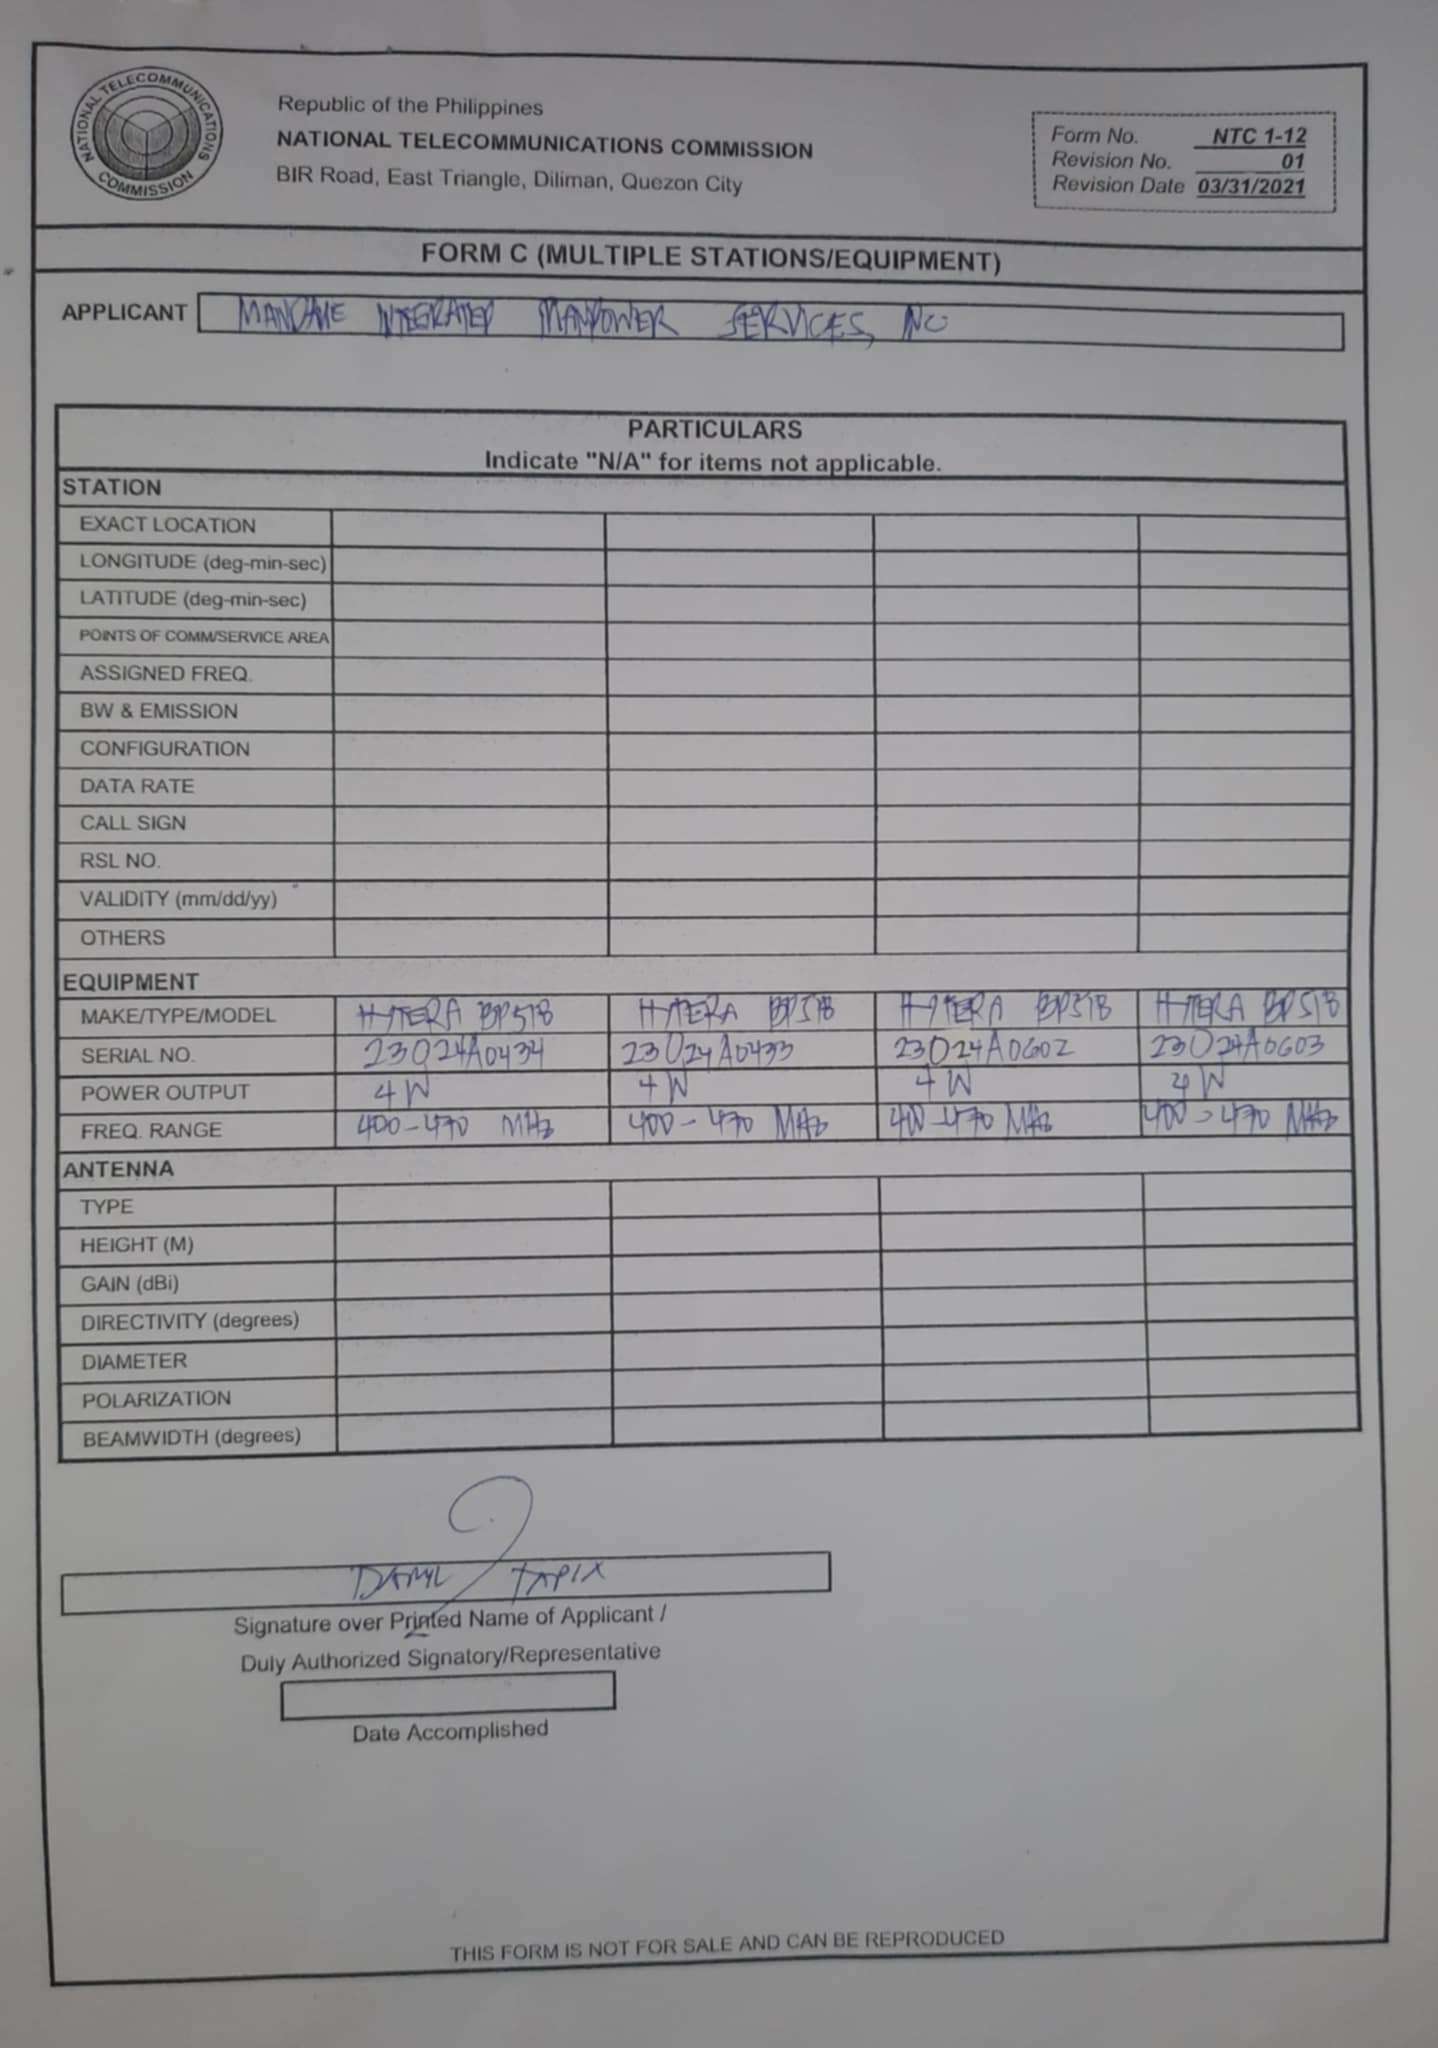 NATIONAL TELECOMMUNICATIONS COMMISSION
Republic of the Philippines
NATIONAL TELECOMMUNICATIONS COMMISSION
BIR Road, East Triangle, Diliman, Quezon City
Form No. NTC 1-12
Revision No. 01
Revision Date 03/31/2021
FORM C (MULTIPLE STATIONS/EQUIPMENT)
APPLICANT INTEGRATED MANPOWER SERVICES, INC
PARTICULARS
Indicate "N/A" for items not applicable.
STATION
EXACT LOCATION
LONGITUDE (deg-min-sec)
LATITUDE (deg-min-sec)
POINTS OF COMM/SERVICE AREA
ASSIGNED FREQ.
BW & EMISSION
CONFIGURATION
DATA RATE
CALL SIGN
RSL NO.
VALIDITY (mm/dd/yy)
OTHERS
EQUIPMENT
MAKE/TYPE/MODEL HYTERA BP518 HYTERA BP518 HYTERA BP518 HYTERA BP518
SERIAL NO. 23O24A0434 23O24A0433 23O24A0602 23O24A0603
POWER OUTPUT 4 W 4 W 4 W 4 W
FREQ. RANGE 400-470 MHz 400-470 MHz 400-470 MHz 400-470 MHz
ANTENNA
TYPE
HEIGHT (M)
GAIN (dBi)
DIRECTIVITY (degrees)
DIAMETER
POLARIZATION
BEAMWIDTH (degrees)
DARYL TAPIX
Signature over Printed Name of Applicant /
Duly Authorized Signatory/Representative
Date Accomplished
THIS FORM IS NOT FOR SALE AND CAN BE REPRODUCED